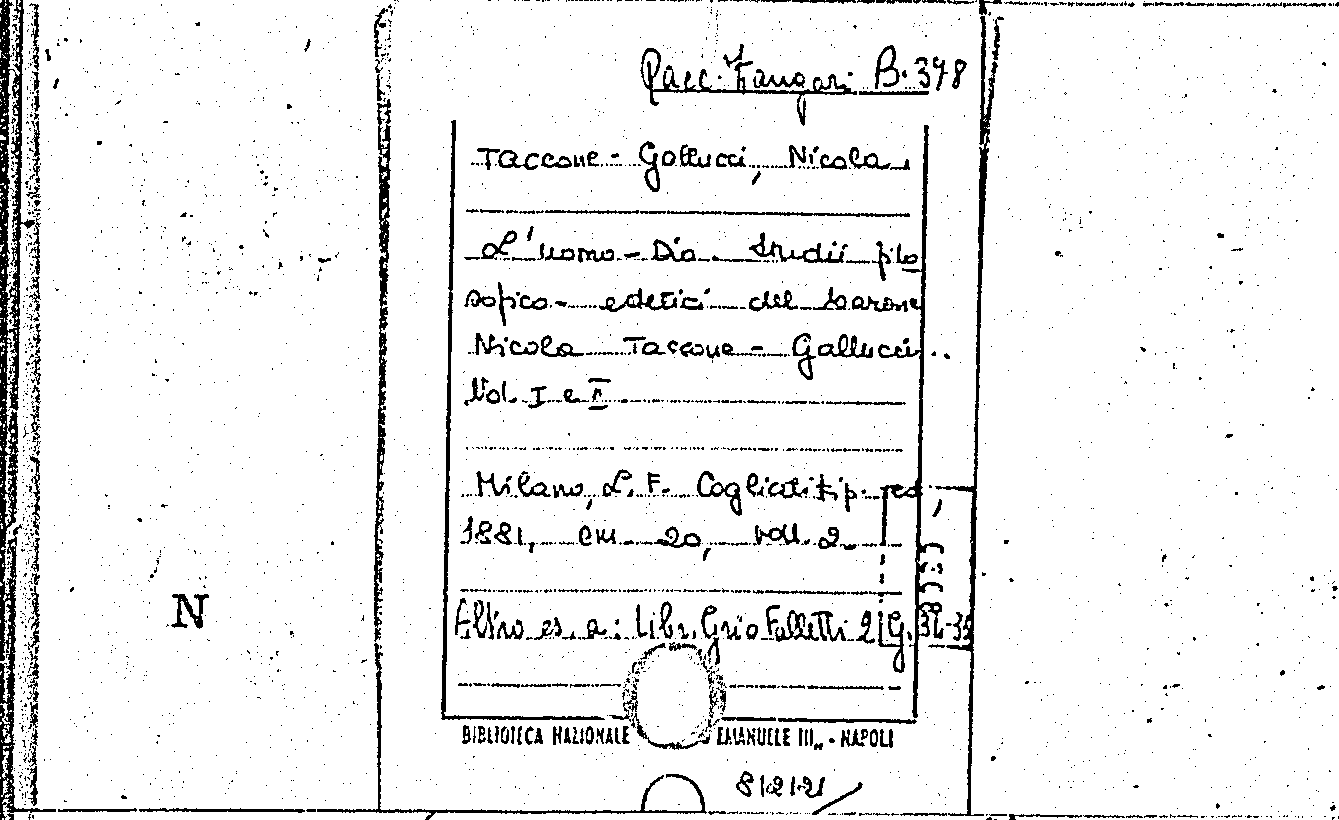 Racc. Zangari B. 378
Taccone-Gallucci, Nicola.
L'uomo-Dio. Studii filo
sofico-estetici del barone
Nicola Taccone-Gallucci..
Vol. I e II.
Milano, L. F. Cogliati tip. ed,
1881, cm. 20, voll. 2.
Altro es. a: Libr. Grio Falletti 2 G. 32-33
N
BIBLIOTECA NAZIONALE EMANUELE III„ - NAPOLI